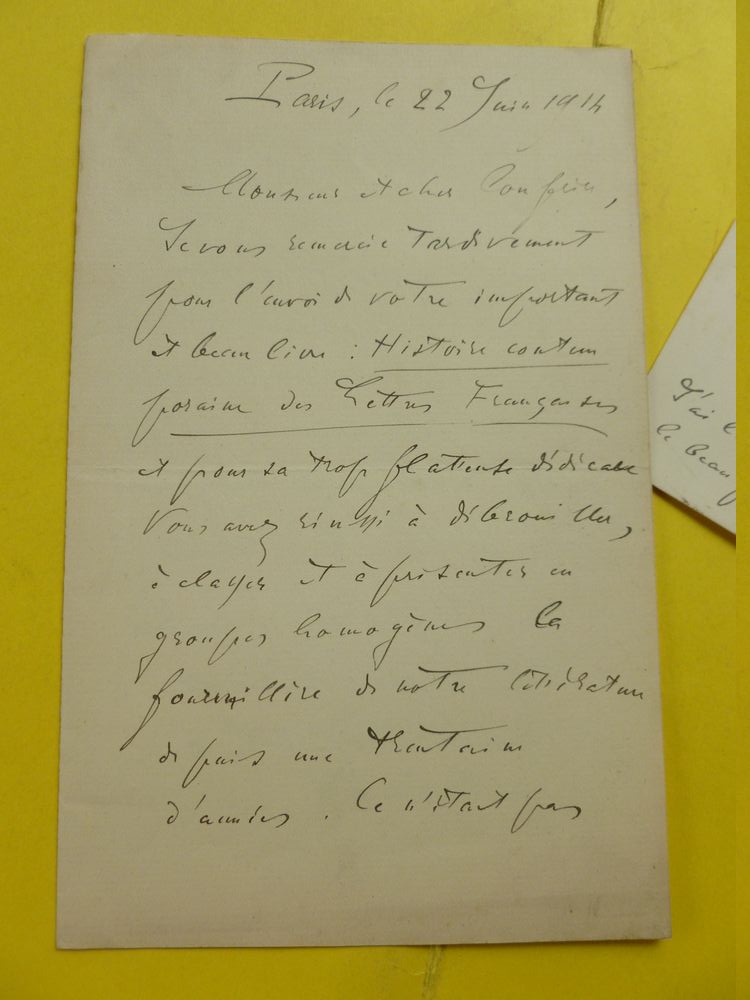 Paris, le 22 Juin 1914
Monsieur et cher Confrère,
Je vous remercie tardivement
pour l'envoi de votre important
et beau livre : Histoire contem
poraine des Lettres Françaises
et pour sa trop flatteuse dédicace
Vous avez réussi à débrouiller,
à classer et à présenter en
groupes homogènes la
fourmillière de notre littérature
depuis une trentaine
d'années. Ce n'était pas
J'ai l
le beau